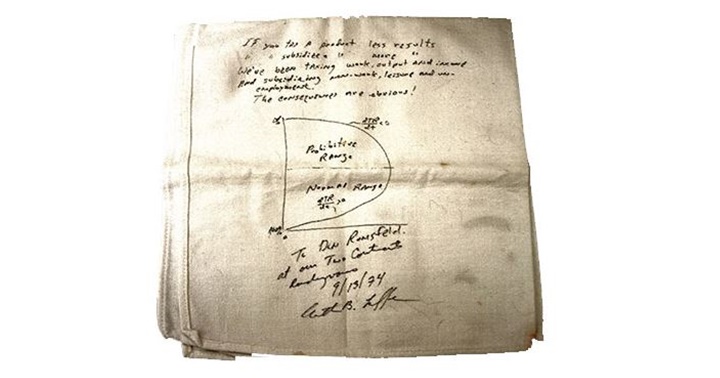 If you tax a product less results
" " subsidize " more "
We've been taxing work, output and income
and subsidizing non-work, leisure and un-
employment.
The consequences are obvious!
dTR/dt < 0
Prohibitive
Range
Normal Range
dTR/dt > 0
To Don Rumsfeld.
at our Two Continents
Rendezvous
9/13/74
Arthur B. Laffer